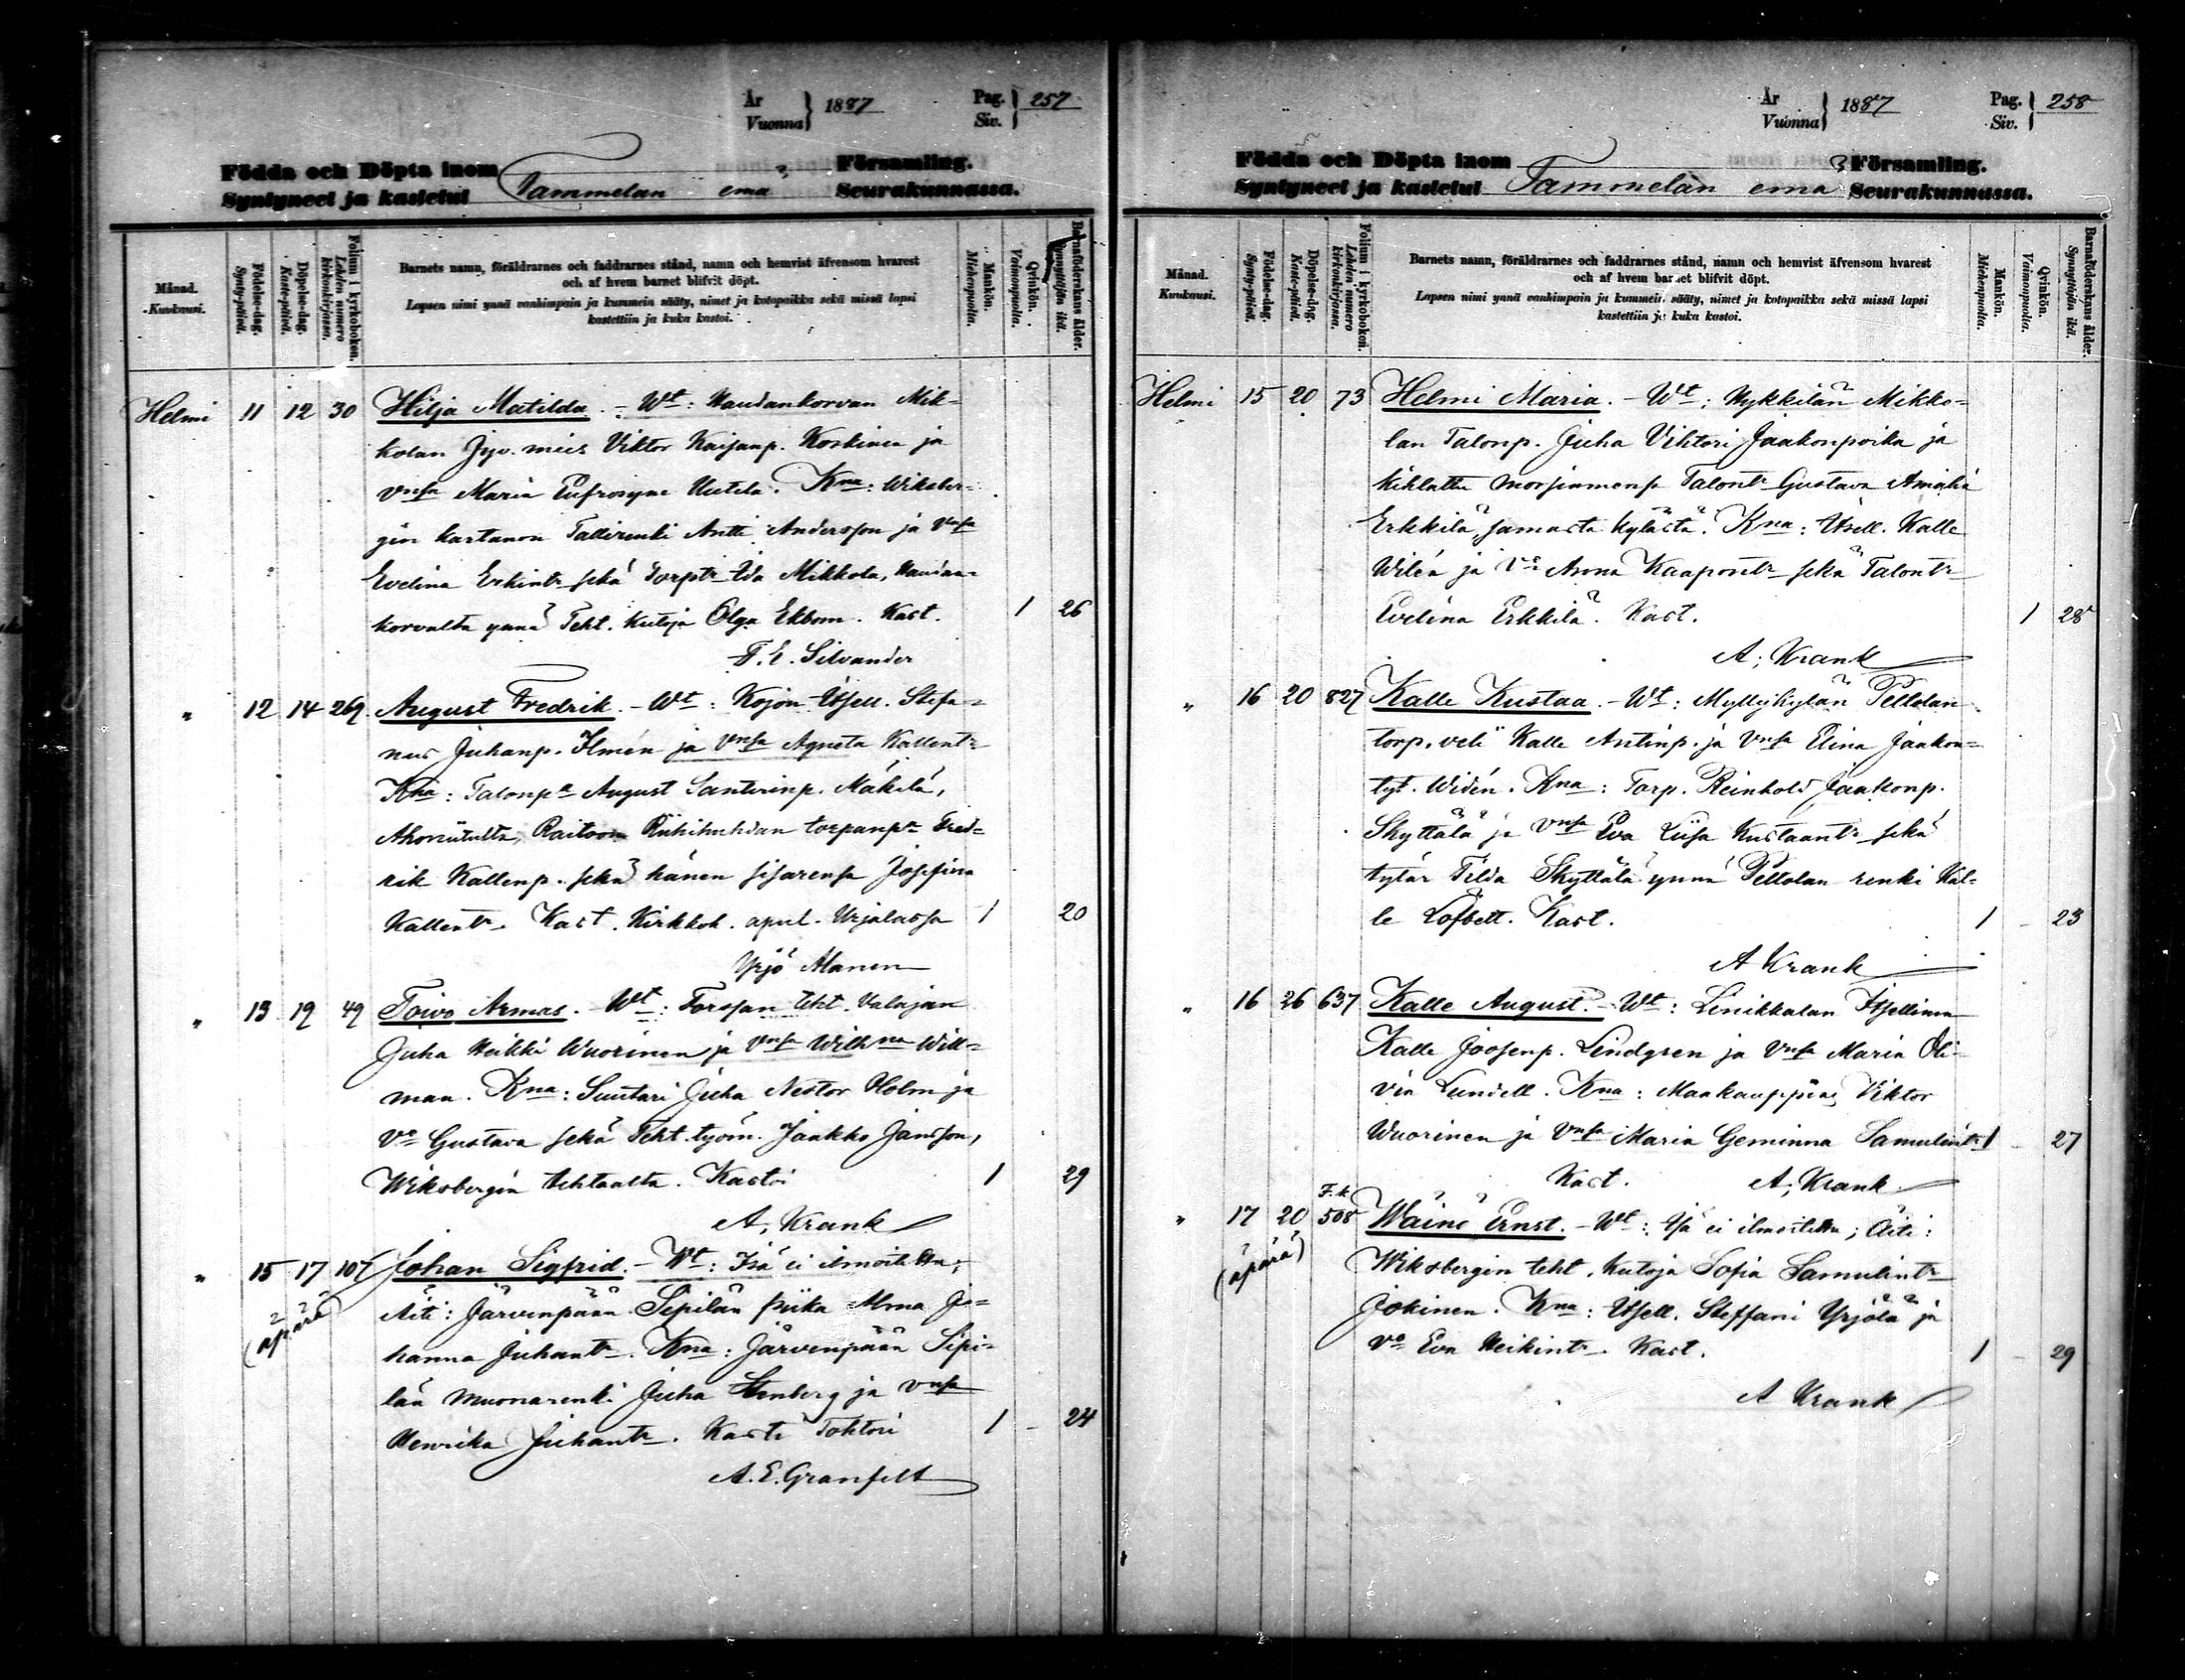 År
Vuonna } 1887
Pag.
Siv. } 257
Födda och Döpta inom
Syntyneet ja kastetut Tammelan emä Församling.
Seurakunnassa.
Månad.
Kuukausi.
Födelse-dag.
Synty-päivä.
Döpelse-dag.
Kaste-päivä.
Folium i kyrkoboken.
Lehden numero kirkonkirjassa.
Barnets namn, föräldrarnes och faddrarnes stånd, namn och hemvist äfvensom hvarest
och af hvem barnet blifvit döpt.
Lapsen nimi ynnä vanhimpain ja kummein sääty, nimet ja kotopaikka sekä missä lapsi
kastettiin ja kuka kastoi.
Mankön.
Miehenpuolta.
Qvinkön.
Vaimonpuolta.
Barnaföderskans ålder.
Synnyttäjän ikä.
Helmi 11 12 30 Hilja Matilda. - Wt: Haudankorvan Mik-
kolan Jyv. mies Viktor Kaijanp. Koskinen ja
vnsa Maria Eufrosyne Uutela. Kna: Wiksber-
gin kartanon Tallirenki Antti Andersson ja vnsa
Evelina Erkintr sekä Torptr Ida Mikkola, Haudan-
korvalta ynnä Teht. kutoja Olga Ekbom. Kast. 1 26
F. E. Silvander
" 12 14 269. August Fredrik. - Wt: Kojon Itsell. Stefa-
nus Juhanp. Ilmén ja vnsa Agneta Kallentr
Kna: Talonpa August Santerinp. Mäkelä,
Raitoon Riihihuhdan torpanpa Fred-
rik Kallenp. sekä hänen sisarensa Josefina
Kallentr. Kast. Kirkkoh. apul. Urjalassa 1 20
Yrjö Alanen
" 13 19 49 Toivo Armas. - Wt: Forssan teht. Valajan
Juha Heikki Wuorinen ja vnsa Wilhna Will-
man. Kna: Suutari Juha Nestor Holm ja
vo Gustava sekä Teht. työm. Jaakko Jansson,
Wiksbergin tehtaalta. Kastoi 1 29
A. Krank
" 15 17 107 Johan Sigfrid. - Wt: Isä ei ilmoitettu;
(äpärä) Äiti: Järvenpään Sepilän piika Alma Jo-
hanna Juhantr. Kna: Järvenpään Sipi-
län muonarenki Juha Stenberg ja vnsa
Henrika Juhantr. Kasti Tohtori 1 - 24
A. E. Granfelt
År
Vuonna } 1887
Pag.
Siv. } 258
Födda och Döpta inom
Syntyneet ja kastetut Tammelan emä Församling.
Seurakunnassa.
Månad.
Kuukausi.
Födelse-dag.
Synty-päivä.
Döpelse-dag.
Kaste-päivä.
Folium i kyrkoboken.
Lehden numero kirkonkirjassa.
Barnets namn, föräldrarnes och faddrarnes stånd, namn och hemvist äfvensom hvarest
och af hvem barnet blifvit döpt.
Lapsen nimi ynnä vanhimpain ja kummein sääty, nimet ja kotopaikka sekä missä lapsi
kastettiin ja kuka kastoi.
Mankön.
Miehenpuolta.
Qvinkön.
Vaimonpuolta.
Barnaföderskans ålder.
Synnyttäjän ikä.
Helmi 15 20 73 Helmi Maria. - Wt: Hykkilän Mikko-
lan Talonp. Juha Vihtori Jaakonpoika ja
kihlattu morsiamensa Talontr Gustava Amalia
Erkkilä, samasta kylästä. Kna: Itsell. Kalle
Wilén ja vo Anna Kaapontr sekä Talontr
Evelina Erkkilä. Kast. 1 28
A. Krank
" 16 20 827 Kalle Kustaa. - Wt: Myllykylän Peltolan
torp. veli Kalle Antinp. ja vnsa Elina Jaakon-
tyt. Widén. Kna: Torp. Reinhold Jaakonp.
Skyttälä ja vnsa Eva Liisa Kustaantr sekä
tytär Tilda Skyttälä ynnä Peltolan renki Kal-
le Löfbett. Kast. 1 - 23
A Krank
" 16 26 637 Kalle August. - Wt: Linikkalan Itsellinen
Kalle Joosenp. Lindgren ja vnsa Maria Oli-
via Lundell. Kna: Maakauppias Viktor
Wuorinen ja vnsa Maria Geminna Samulintr 1 - 27
Kast. A. Krank
" 17 20 F.k. 508 Wäinö Ernst. - Wt: Isä ei ilmoitettu; Äiti:
(äpärä) Wiksbergin teht. kutoja Sofia Samulintr
Jokinen. Kna: Itsell. Steffani Yrjölä ja
vo Eva Heikintr. Kast. 1 - 29
A Krank